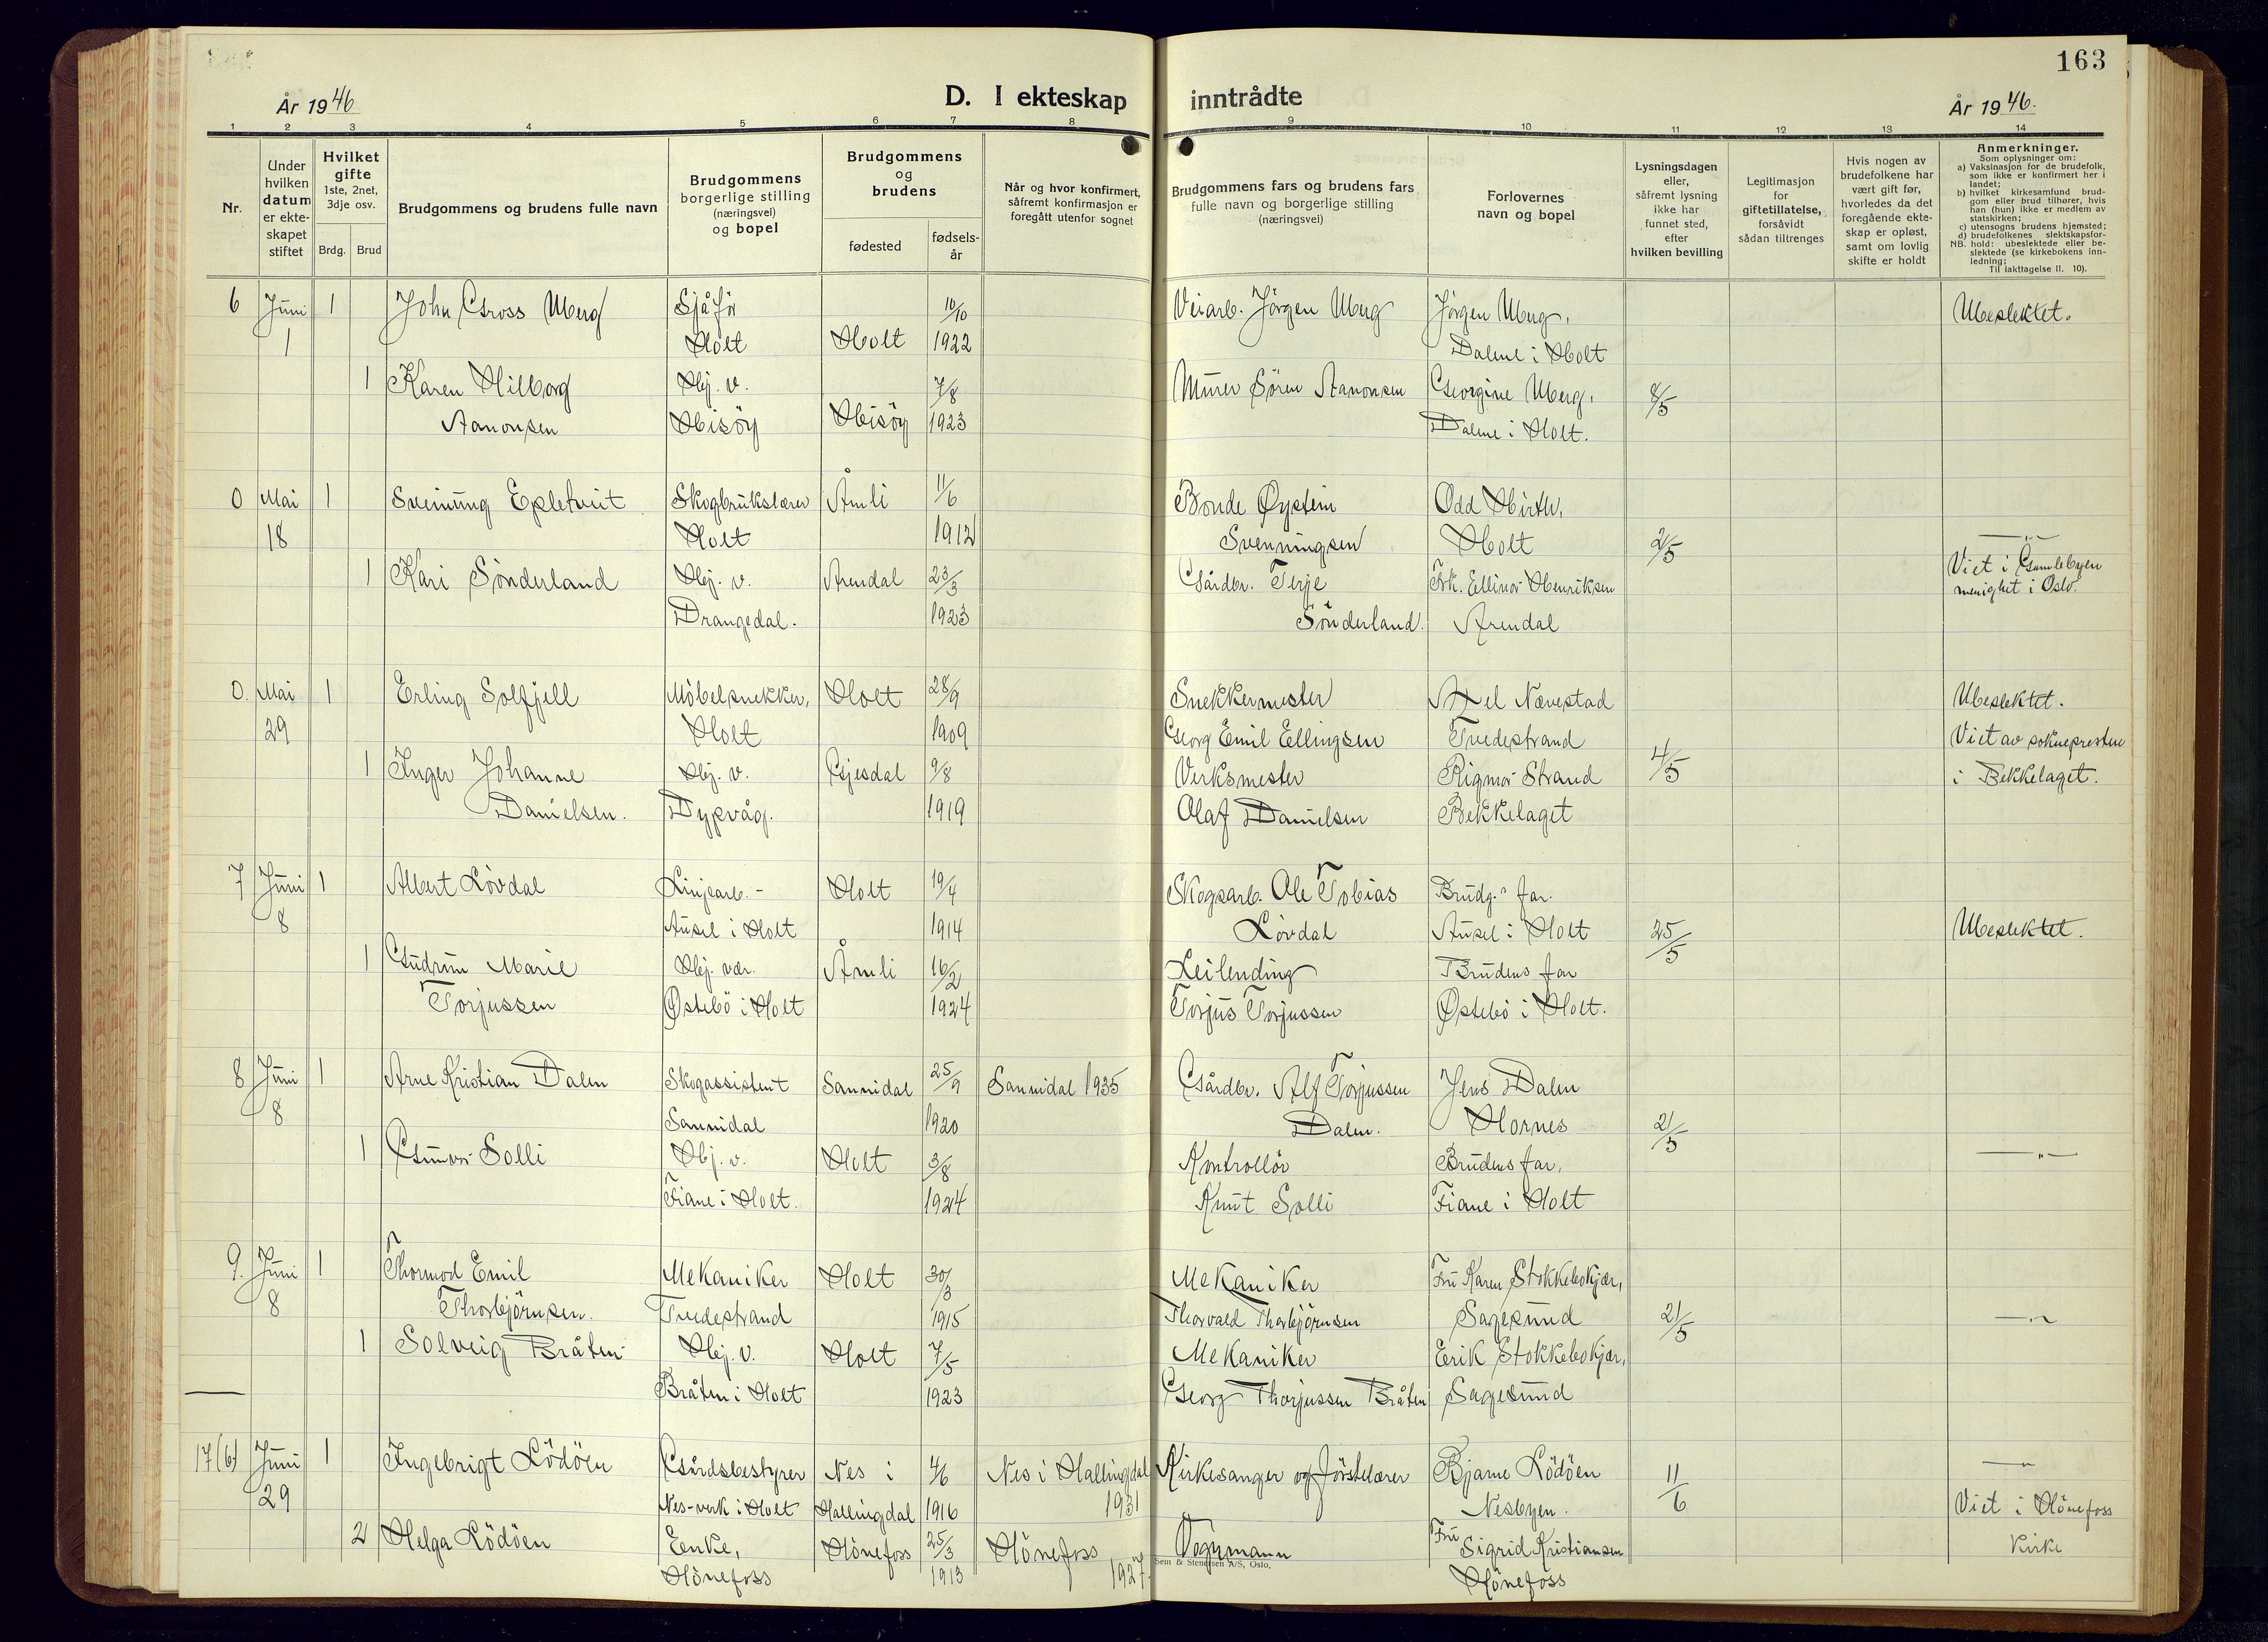 163
År 1946
D. I ekteskap inntrådte
År 1946.
1 2 3 4 5 6 7 8 9 10 11 12 13 14
Nr.
Under
hvilken
datum
er ekte-
skapet
stiftet
Hvilket
gifte
1ste, 2net,
3dje osv.
Brdg. Brud
Brudgommens og brudens fulle navn
Brudgommens
borgerlige stilling
(næringsvei)
og bopel
Brudgommens
og
brudens
fødested
fødsels-
år
Når og hvor konfirmert,
såfremt konfirmasjon er
foregått utenfor sognet
Brudgommens fars og brudens fars
fulle navn og borgerlige stilling
(næringsvei)
Forlovernes
navn og bopel
Lysningsdagen
eller,
såfremt lysning
ikke har
funnet sted,
efter
hvilken bevilling
Legitimasjon
for
giftetillatelse,
forsåvidt
sådan tiltrenges
Hvis nogen av
brudefolkene har
vært gift før,
hvorledes da det
foregående ekte-
skap er opløst,
samt om lovlig
skifte er holdt
Anmerkninger.
Som oplysninger om:
a) Vaksinasjon for de brudefolk,
som ikke er konfirmert her i
landet;
b) hvilket kirkesamfund brud-
gom eller brud tilhører, hvis
han (hun) ikke er medlem av
statskirken;
c) utensogns brudens hjemsted;
d) brudefolkenes slektskapsfor-
NB. hold: ubeslektede eller be-
slektede (se kirkebokens inn-
ledning;
Til iakttagelse II. 10).
6 Juni 1 John Gross Uberg Sjåfør 10/10 Veiarb. Jörgen Uberg Jörgen Uberg, Ubeslektet.
1 Holt Holt 1922 Dalene i Holt
1 Karen Hilborg Hj. v. 7/8 Murer Sören Aanonsen Georgine Uberg, 8/5
Aanonsen Hisöy Hisöy 1923 Dalene i Holt.
0 Mai 1 Sveinung Epletveit Skogbrukslærer Åmli 11/6 Bonde Øystein Odd Hirth,
18 Holt 1912 Svenningsen Holt 2/5 —"—
1 Kari Sönderland Hj. v. Arendal 23/3 Gårdbr. Terje Frk. Ellinor Henriksen Viet i Gamlebyen
Drangedal. 1923 Sönderland. Arendal menighet i Oslo.
0. Mai 1 Erling Solfjell Möbelsnekker, Holt 28/9 Snekkermester Axel Nævestad Ubeslektet.
29 Holt 1909 Georg Emil Ellingsen Tvedestrand Viet av soknepresten
1 Inger Johanne Hj. v. Gjesdal 9/8 Verksmester Rigmor Strand 4/5 i Bekkelaget.
Danielsen. Dypvåg. 1919 Olaf Danielsen Bekkelaget
7 Juni 1 Albert Lövdal Linjearb. - Holt 19/4 Skogsarb. Ole Tobias Brudg.s far.
8 Ausel i Holt 1914 Lövdal Ausel i Holt 25/5 Ubeslektet.
1 Gudrun Marie Hj. vær. Åmli 16/2 Leilending Brudens far
Torjussen Østebö i Holt 1924 Torjus Torjussen Østebö i Holt.
8 Juni 1 Arne Kristian Dalen Skogassistent Sannidal 25/9 Sannidal 1935 Gårdbr. Alf Torjussen Jens Dalen
8 Sannidal 1920 Dalen. Hornes 21/5
1 Gunvor Solli Hj. v. Holt 3/8 Kontrollör Brudens far, —"—
Fiane i Holt. 1924 Knut Solli Fiane i Holt
9. Juni 1 Thormod Emil Mekaniker Holt 30/3 Mekaniker Fru Karen Stokkebokjær,
8 Thorbjörnsen. Tvedestrand 1915 Thorvald Thorbjörnsen Sagesund 21/5 —"—
1 Solveig Bråten Hj. v. Holt 7/5 Mekaniker Eerik Stokkebokjær,
Bråten i Holt 1923 Georg Thorjussen Bråten Sagesund
17(6) Juni 1 Ingebrigt Lödöen Gårdsbestyrer Nes i 4/6 Nes i Hallingdal Kirkesanger og förstelærer Bjarne Lödöen 11/6 —"—
29 Nes-verk i Holt Hallingdal 1916 1931 Nesbyen. Viet i Hönefoss
2 Helga Lödöen Enke, Hönefoss 25/3 Hönefoss Vognmann Fru Sigrid Kristiansen Kirke
Hönefoss 1913 1927. Hönefoss
Sem & Stenersen A/S, Oslo.